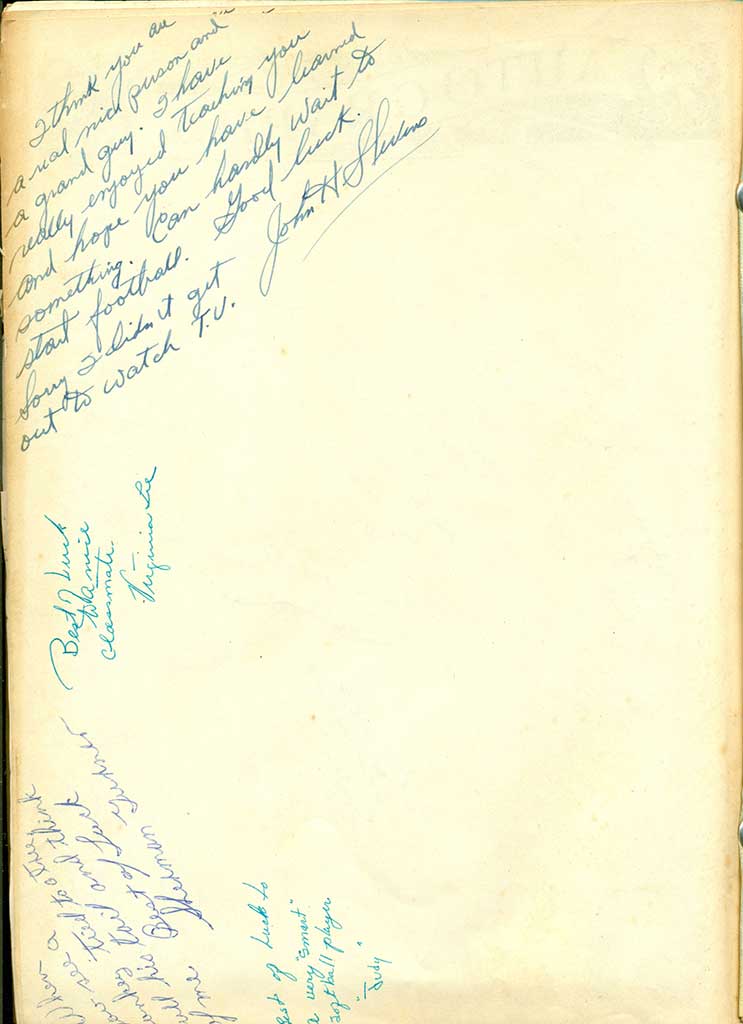 I think you are
a real nice person and
a grand guy. I have
really enjoyed teaching you
and hope you have learned
something. Can hardly wait to
start football. Good luck.
Sorry I didn't get
out to watch T.V.
John H Stevens
Best Luck
to a nice
classmate.
Virginia Lee
When
you see a
monkey tied to a tree
pull his tail and think
of me. Best of Luck
Sherman
Best of Luck to
a very "smart"
softball player
"Judy"